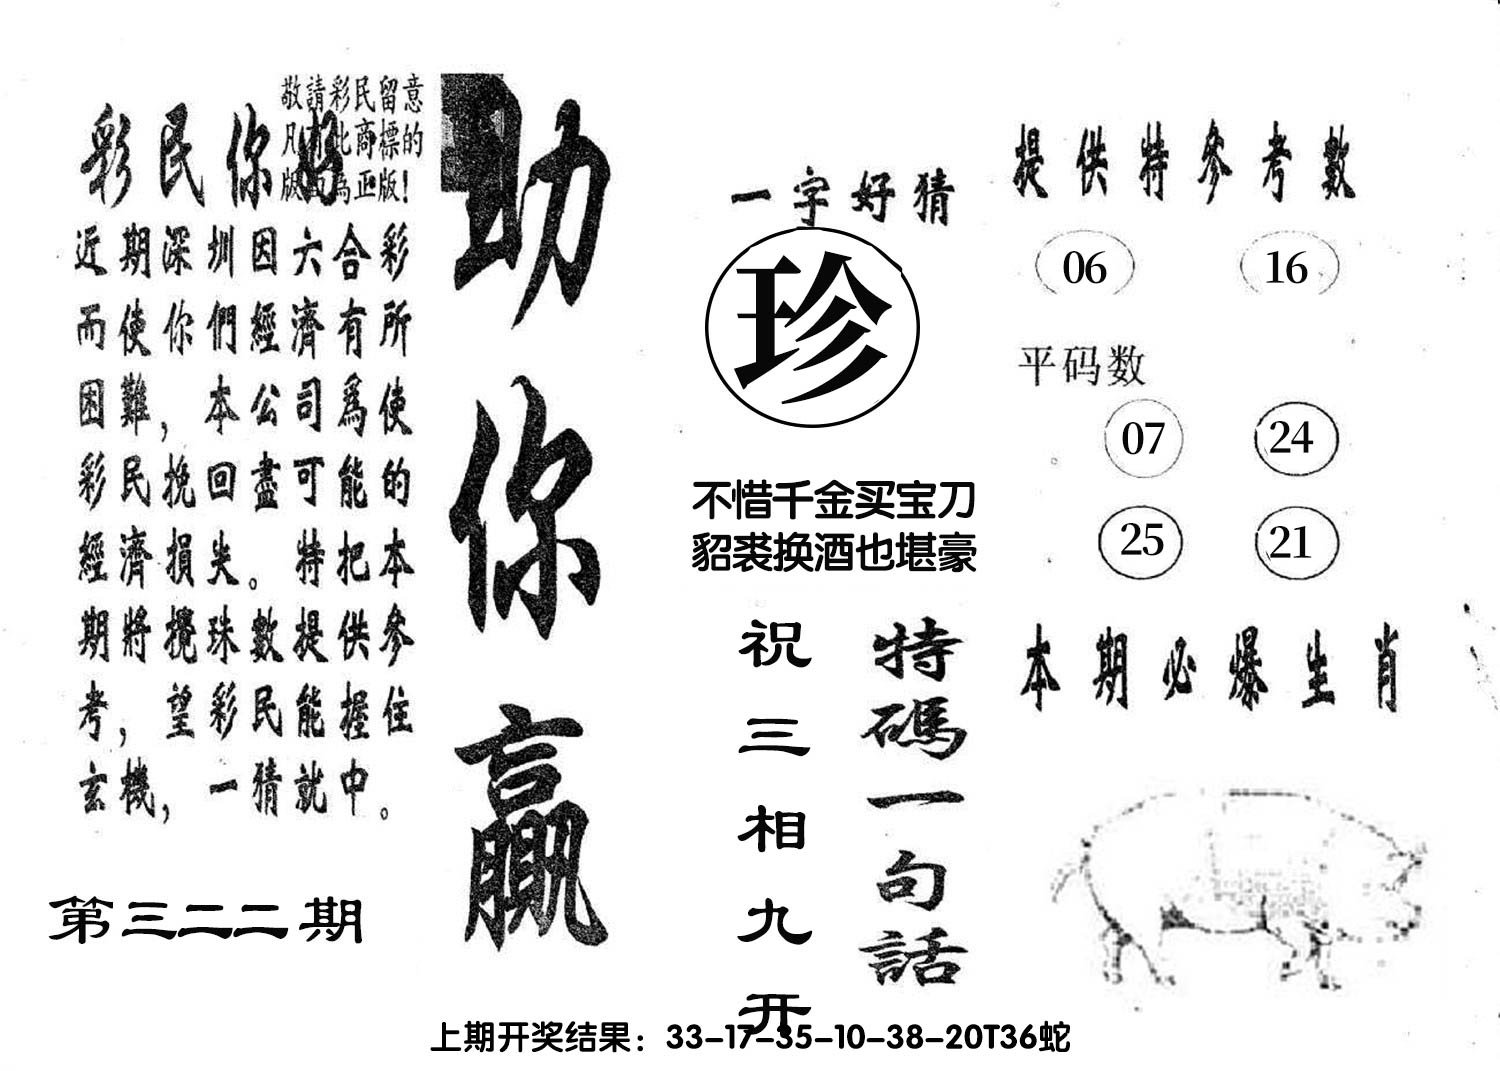 敬請彩民留意
凡有此商標的
版面為正版！
彩民你好
近期深圳因六合彩
而使你們經濟有所
困難，本公司爲使
彩民挽回盡可能的
經濟損失。特把本
期將攪珠數提供參
考，望彩民能握住
玄機，一猜就中。
第三二二期
助你贏
一字好猜
珍
不惜千金买宝刀
貂裘换酒也堪豪
特碼一句話
祝三相九开
提供特參考數
06 16
平码数
07 24
25 21
本期必爆生肖
上期开奖结果：33-17-35-10-38-20T36蛇